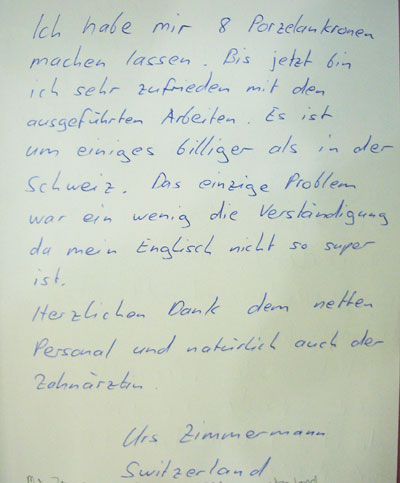 Ich habe mir 8 Porzelankronen
machen lassen. Bis jetzt bin
ich sehr zufrieden mit den
ausgeführten Arbeiten. Es ist
um einiges billiger als in der
Schweiz. Das einzige Problem
war ein wenig die Verständigung
da mein Englisch nicht so super
ist.
Herzlichen Dank dem netten
Personal und natürlich auch der
Zahnärztin.
Urs Zimmermann
Switzerland